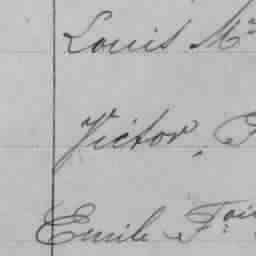 Louis M
Victor,
Emile